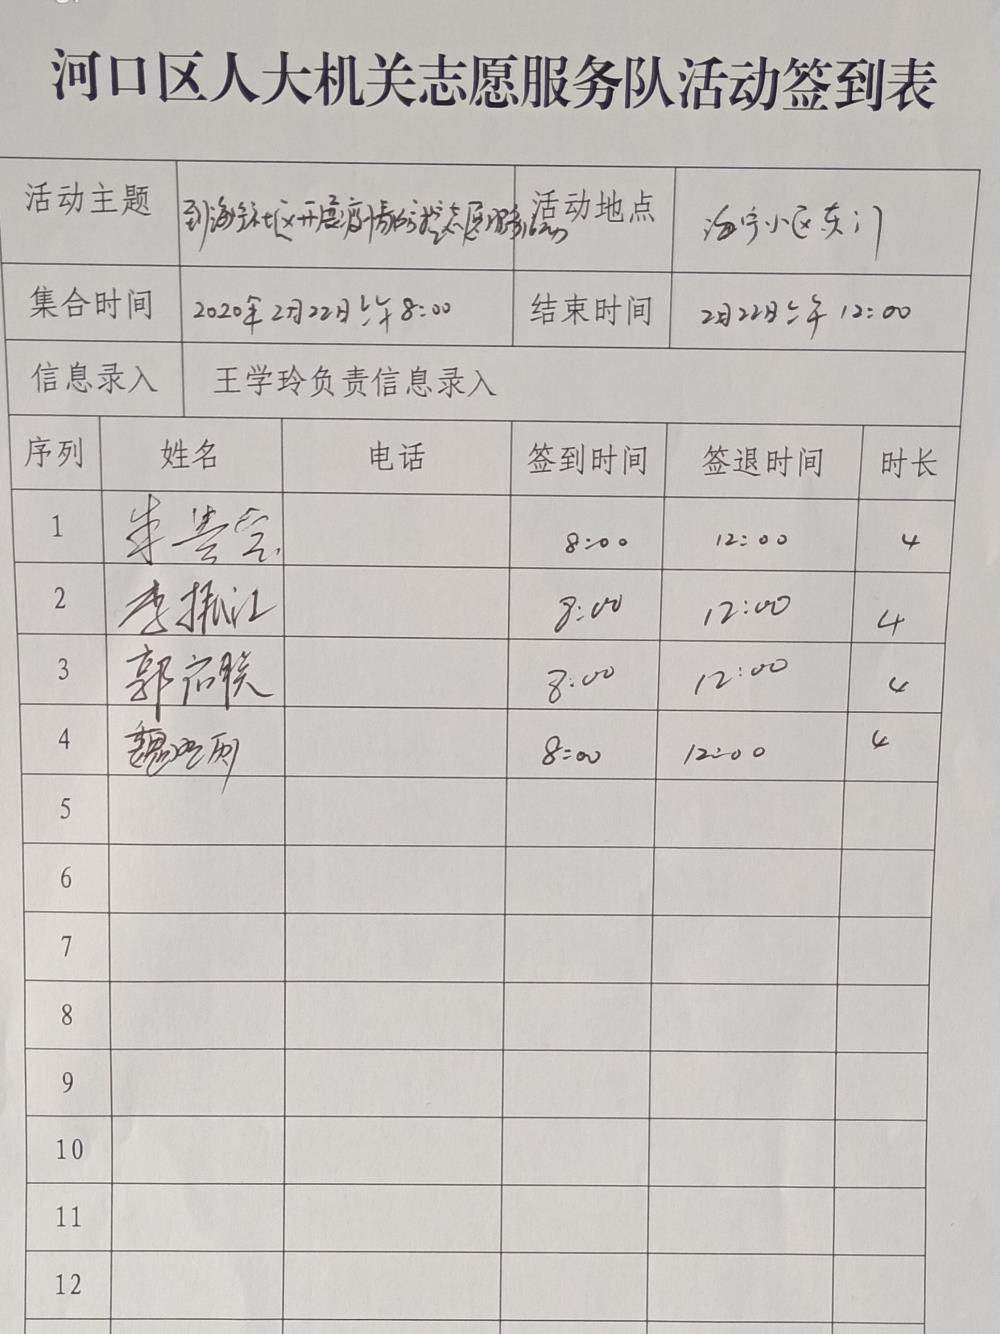 河口区人大机关志愿服务队活动签到表
活动主题 到海宁社区开展疫情防控志愿服务活动 活动地点 海宁小区东门
集合时间 2020年2月22日上午8:00 结束时间 2月22日上午12:00
信息录入 王学玲负责信息录入
序列 姓名 电话 签到时间 签退时间 时长
1 8:00 12:00 4
2 李振江 8:00 12:00 4
3 郭 8:00 12:00 4
4 魏 8:00 12:00 4
5
6
7
8
9
10
11
12